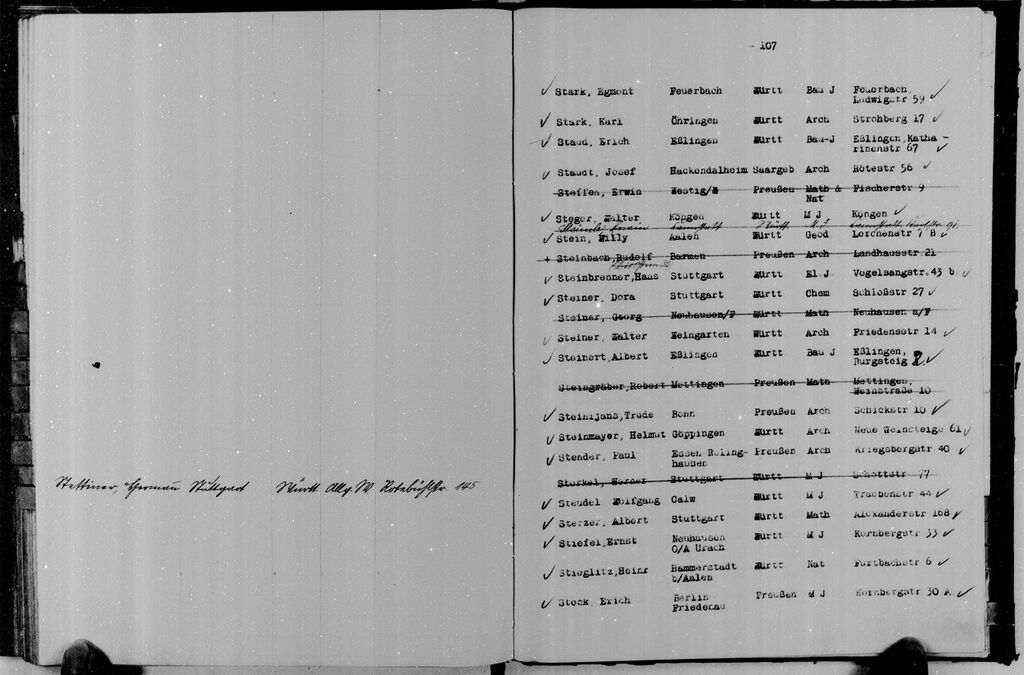 Stettiner, Herman Stuttgart Württ. Allg. W. Rotebühlstr. 145
- 107
Stark, Egmont Feuerbach Württ Bau J Feuerbach,
Ludwigstr 59
Stark, Karl Öhringen Württ Arch Strohberg 17
Staud, Erich Eßlingen Württ Bau-J Eßlingen,Katha-
rinenstr 67
Staudt, Josef Hackendalheim Saargeb Arch Rötestr 56
Steffen, Erwin Westig/W Preußen Math & Fischerstr 9
Nat
Steger, Walter Köngen Württ M J Köngen
Cannstatt Württ. M.J. Cannstatt
Stein, Willy Aalen Württ Geod Lerchenstr 7 B
Steinbach,Rudolf Barmen Preußen Arch Landhausstr 21
Steinbrenner,Hans Stuttgart Württ El J Vogelsangstr 43 b
Steiner, Dora Stuttgart Württ Chem Schloßstr 27
Steiner, Georg Neuhausen/F Württ Math Neuhausen a/F
Steiner, Walter Weingarten Württ Arch Friedensstr 14
Steinert,Albert Eßlingen Württ Bau J Eßlingen,
Burgsteig 2.
Steingräber,Robert Mettingen Preußen Math Mettingen,
Weinstraße 10
Steinijans,Trude Bonn Preußen Arch Schickstr 10
Steinmayer, Helmut Göppingen Württ Arch Neue Weinsteige 61
Stender, Paul Essen Reling- Preußen Arch Kriegsbergstr 40
hausen
Sterkel, Werner Stuttgart Württ M J Schottstr 77
Steudel Wolfgang Calw Württ M J Traubenstr 44
Sterzer, Albert Stuttgart Württ Math Alexanderstr 168
Stiefel,Ernst Neuhausen Württ M J Kornbergstr 33
O/A Urach
Stieglitz,Heinr Hammerstadt Württ Nat Furtbachstr 6
b/Aalen
Stock, Erich Berlin Preußen M J Kornbergstr 30 A
Friedenau